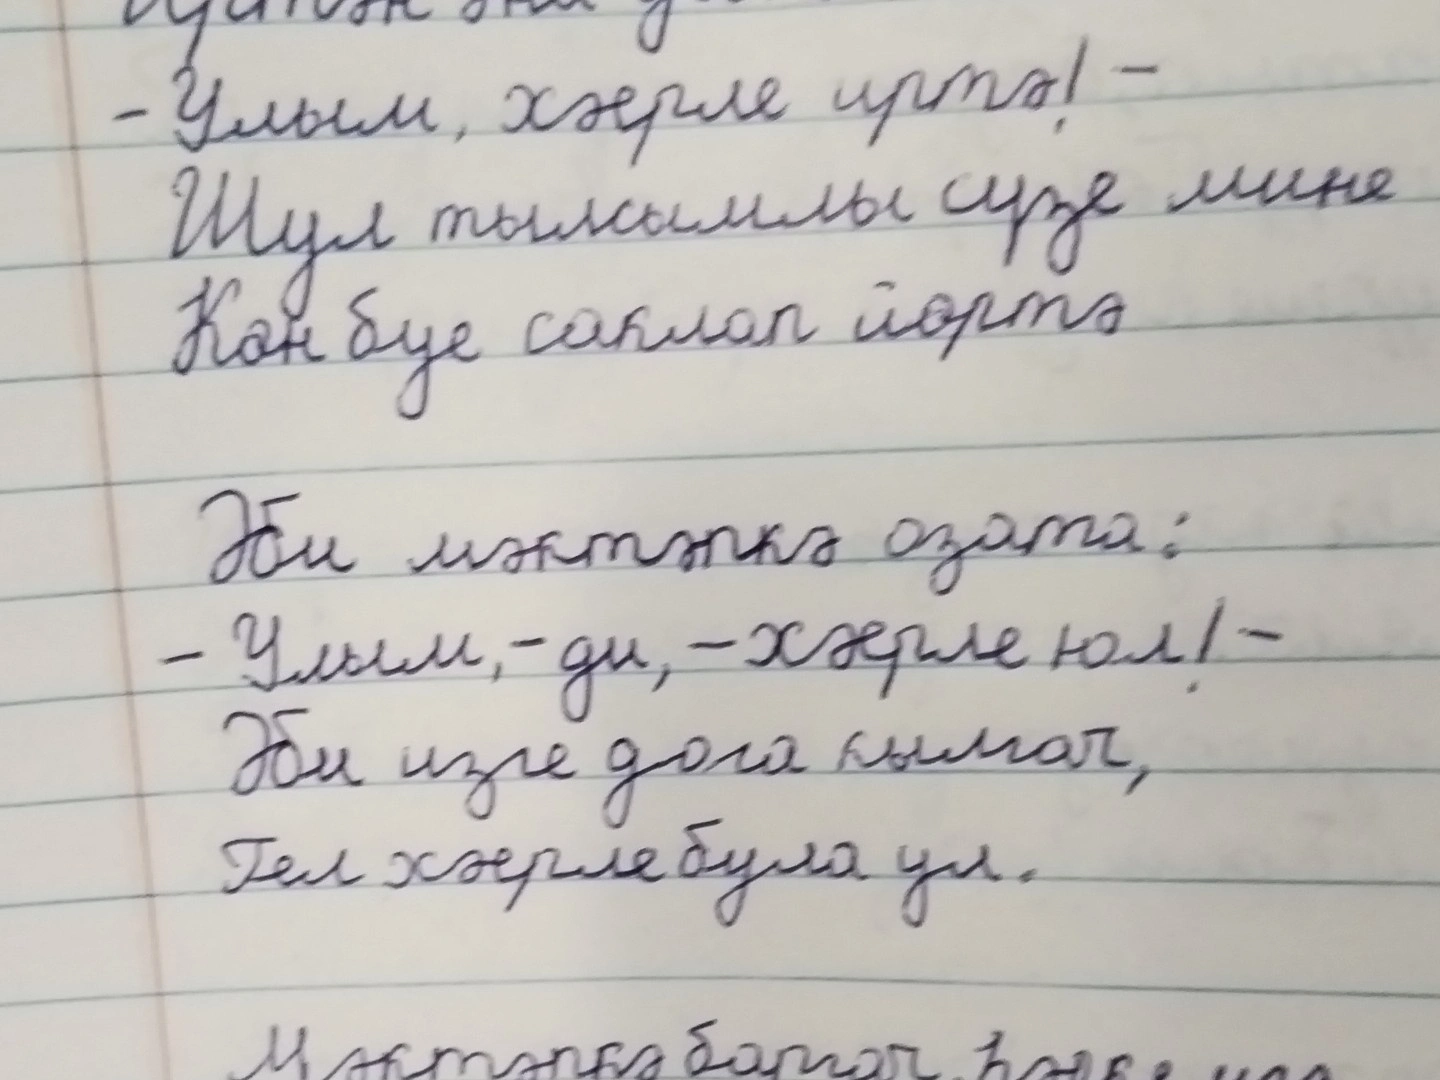 - Улым, хәерле иртә! -
Шул тылсымлы сүзе мине
Көн буе саклап йөртә
Әби мәктәпкә озата:
- Улым, - ди, - хәерле юл! -
Әби изге дога кылгач,
Гел хәерле була ул.
Мәктәпкә баргач,